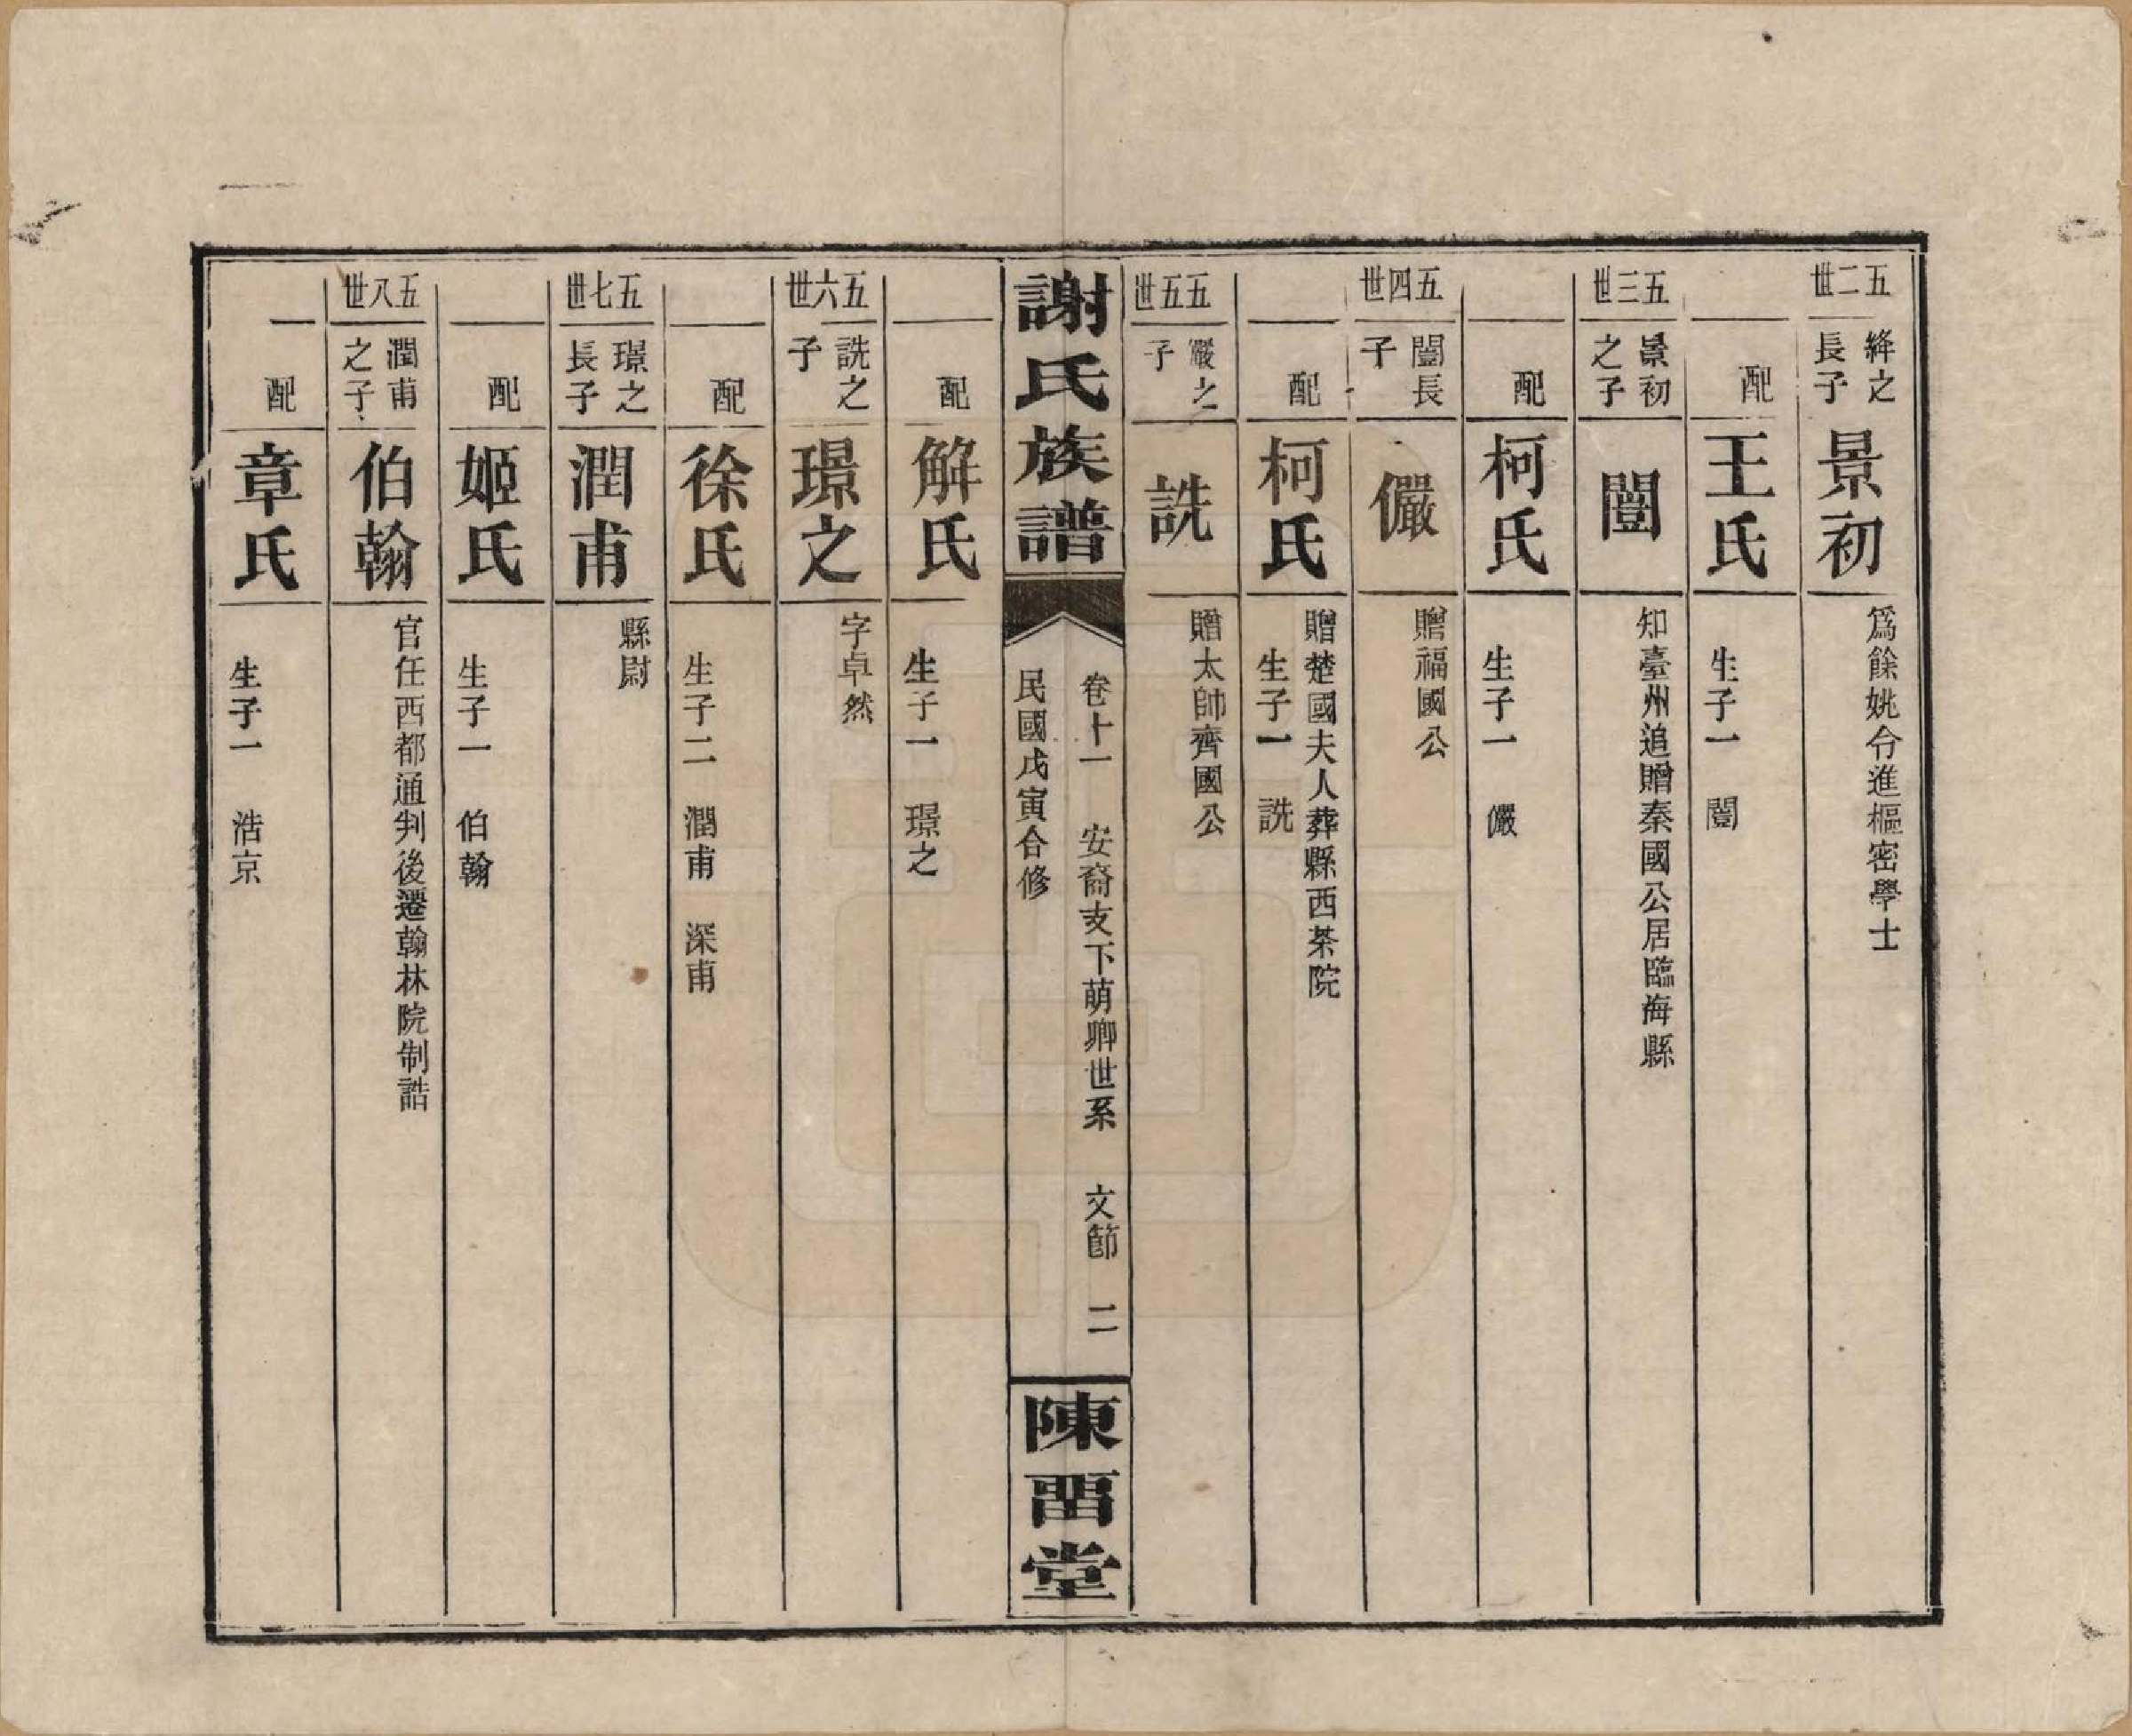 五二世
絳之長子
景初
爲餘姚令進樞密學士
配
王氏
生子一　闓
五三世
景初之子
闓
知臺州追贈秦國公居臨海縣
配
柯氏
生子一　儼
五四世
闓長子
儼
贈福國公
配
柯氏
贈楚國夫人葬縣西茶院
生子一　詵
五五世
儼之子
詵
贈太帥齊國公
謝氏族譜
卷十一　安裔支下萌卿世系　文節　二
民國戊寅合修
陳畱堂
配
解氏
生子一　璟之
五六世
詵之子
璟之
字卓然
配
徐氏
生子二　潤甫　深甫
五七世
璟之長子
潤甫
縣尉
配
姬氏
生子一　伯翰
五八世
潤甫之子
伯翰
官任西都通判後遷翰林院制誥
配
章氏
生子一　浩京